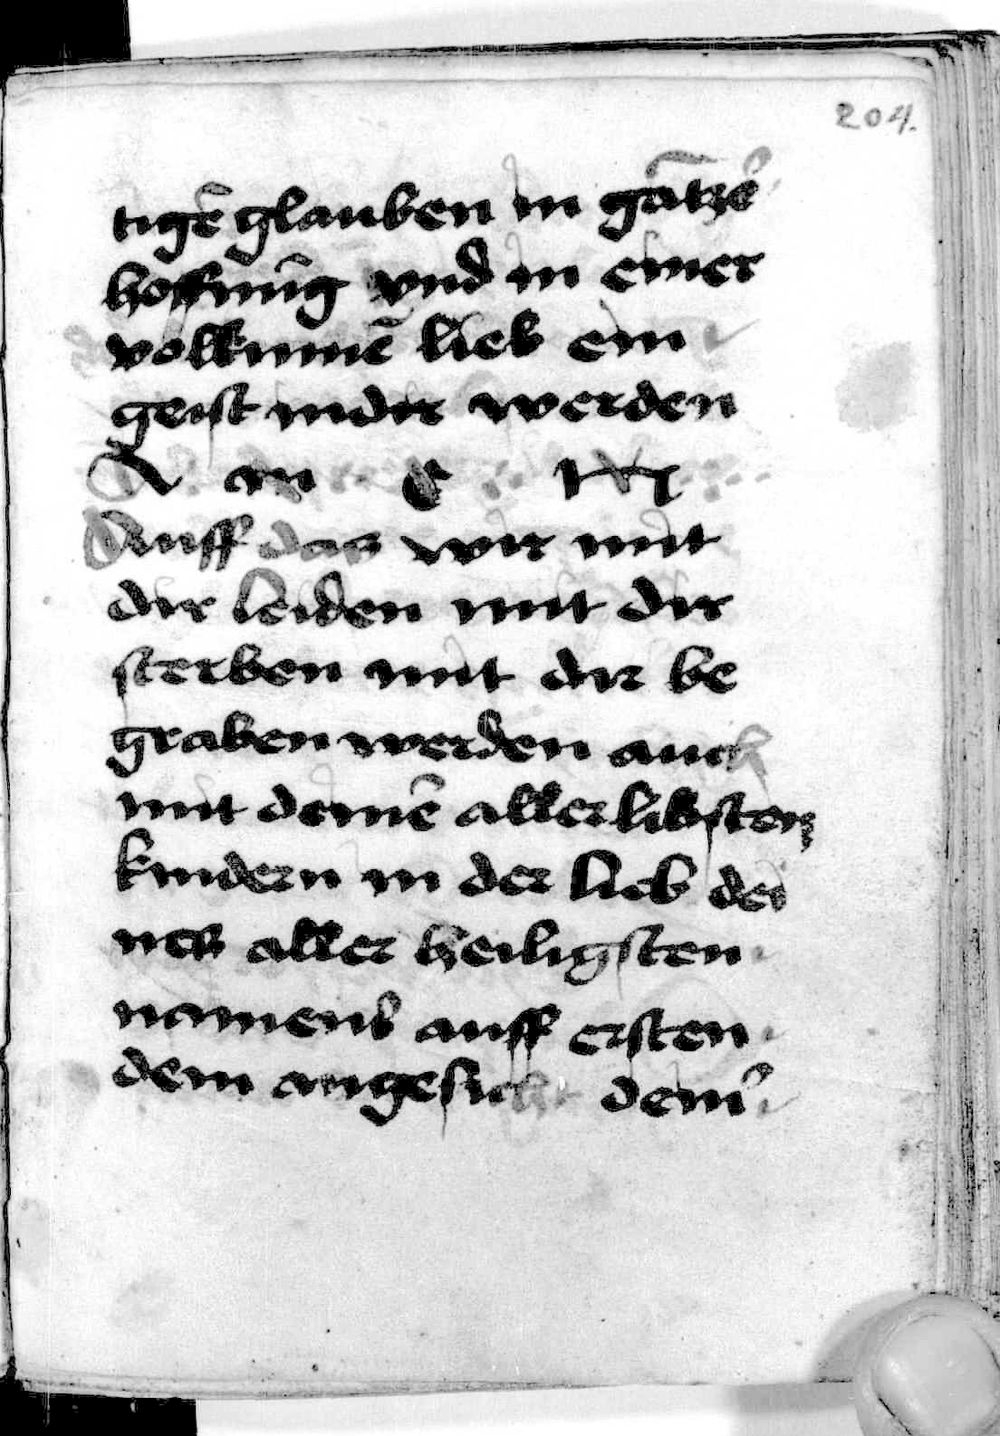 204.
tigē glauben in gātzer
hoffnūg vnd in einer
volkumē lieb ein
geist mdir werden
A m e n
Auff das wir mit
dir leiden mit dir
sterben mit dir be
graben werden auch
mit deinē allerlibsten
kindern in der lieb dei
nes aller heiligsten
namens auff ersten
dem angesicht deiner